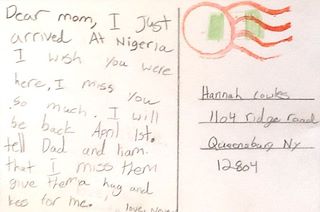 Dear mom, I Just
arrived At Nigeria
I wish you were
here, I miss you
so much. I will
be back April 1st.
tell Dad and
that I miss them
give them a hug and
kess for me.
love,
Hannah Cowles
1104 ridge road
Queensbury Ny
12804